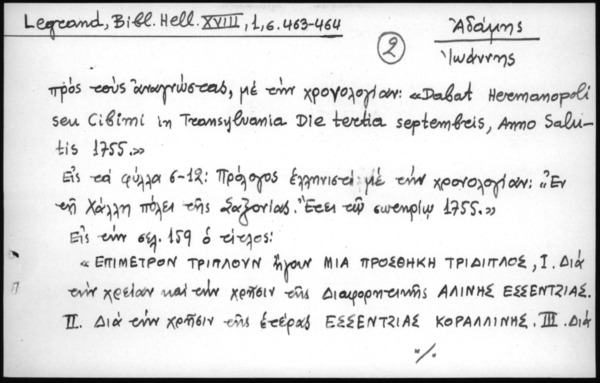 Legrand, Bibl. Hell. XVIII, 1, σ. 463-464
2
Ἀδάμης
Ἰωάννης
πρὸς τοὺς ἀναγνώστας, μὲ τὴν χρονολογίαν: «Dabat Hermanopoli
seu Cibimi in Transylvania Die tertia septembris, Anno Salu-
tis 1755.»
Εἰς τὰ φύλλα 6-12: Πρόλογος ἑλληνιστὶ μὲ τὴν χρονολογίαν: «Ἐν
τῇ Χάλλῃ πόλει τῆς Σαξονίας. Ἔτει τῷ σωτηρίῳ 1755.»
Εἰς τὴν σελ. 159 ὁ τίτλος:
«ΕΠΙΜΕΤΡΟΝ ΤΡΙΠΛΟΥΝ ἤγουν ΜΙΑ ΠΡΟΣΘΗΚΗ ΤΡΙΔΙΠΛΟΣ, I. Διὰ
τὴν χρείαν καὶ τὴν χρῆσιν τῆς Διαφορητικῆς ΑΛΙΝΗΣ ΕΣΣΕΝΤΖΙΑΣ.
II. Διὰ τὴν χρῆσιν τῆς ἑτέρας ΕΣΣΕΝΤΖΙΑΣ ΚΟΡΑΛΛΙΝΗΣ. III. Διὰ
·/.